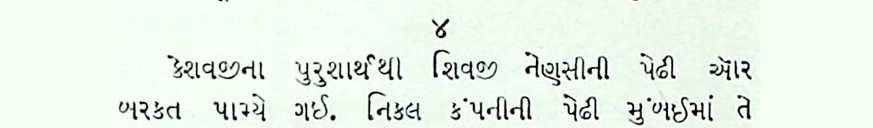 ૪
કેશવજીના પુરુશાર્થથી શિવજી નેણસીની પેઢી ઑર
બરકત પામ્યે ગઈ. નિકલ કંપનીની પેઢી મુંબઈમાં તે